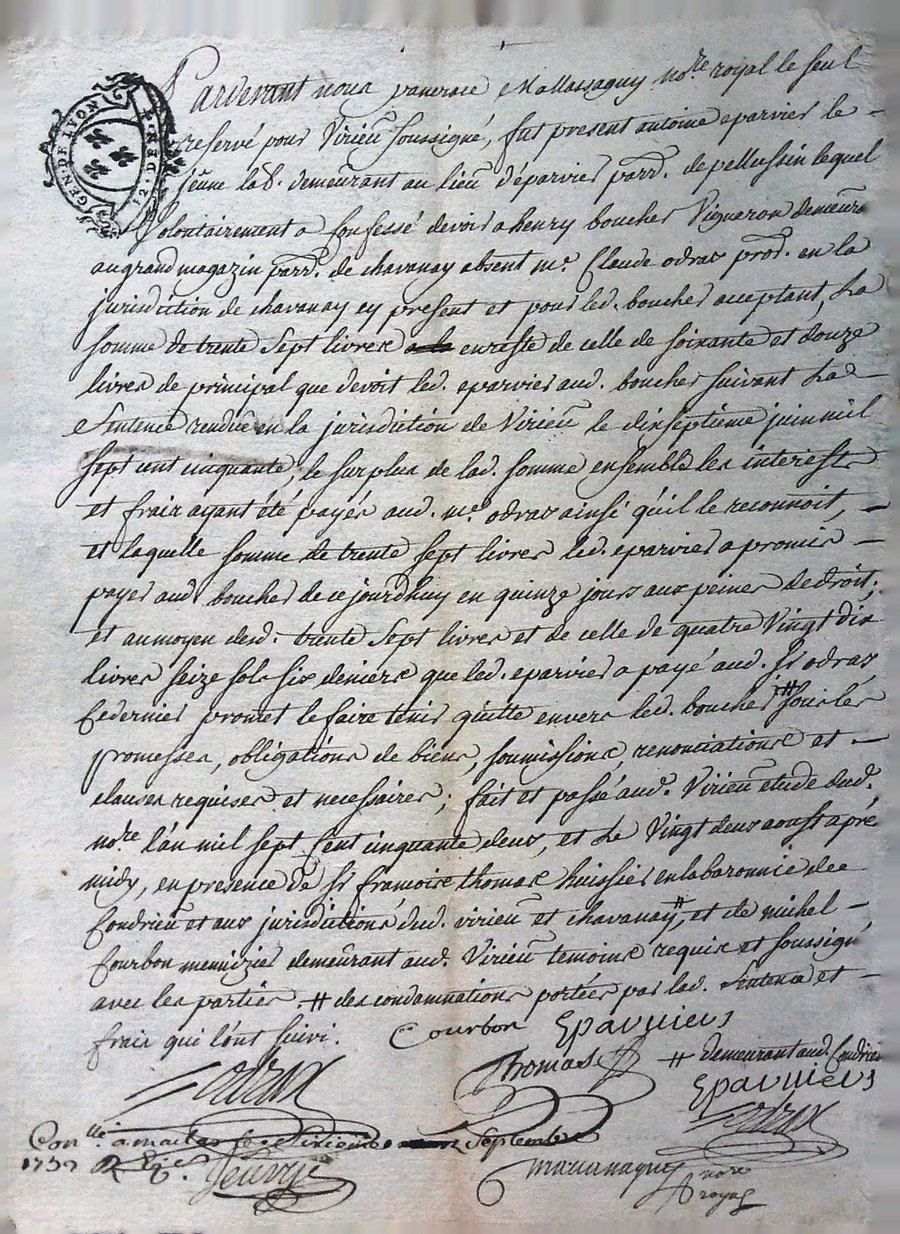 GEN. DE LYON
12. DE
Pardevant nous pancrace Mallassagny no.re royal le seul
reservé pour Virieu soussigné, fut present antoine eparvier le
jeune lab. demeurant au lieu d'éparvier parr. de pellussin lequel
Volontairement a Confessé devoir a henry boucher Vigneron demeur.t
au grand magazin parr. de chavanay absent m.e Claude odras proc. en la
jurisdiction de chavanay cy present et pour led. boucher acceptant, La
somme de trente Sept livres en reste de celle de soixante et douze
livres de principal que devoit led. eparvier aud. boucher suivant La
Sentence rendüe en la jurisdiction de Virieu le dixseptieme juin mil
sept cent cinquante, le surplus de lad. somme ensemble les interests
et fraix ayant été payés aud. m.e odras ainsi qu'il le reconnoit,
et laquelle somme de trente sept livres led. eparvier a promis
payer aud. boucher de ce jourdhuy en quinze jours aux peines de droit;
et au moyen desd. trente Sept livres et de celle de quatre Vingt dix
livres seize sols six deniers que led. eparvier a payé aud. Sr odras
Ce dernier promet le faire tenir quitte envers led. boucher # sous les
promesses, obligations de biens, soumissions, renonciations et
clauses requises et necessaires; fait et passé aud. Virieu etude dud.
no.re l'an mil sept Cent cinquante deux, et Le Vingt deux aoust après
midy, en presence de Sr francois thomas huissier en la baronnie de
Condrieu et aux jurisdictions dud. virieu et chavanay #, et de michel
Courbon menuizier demeurant aud. Virieu temoins requis et soussignés
avec les parties. # des condamnations portées par lad. Sentence et
fraix qui l'ont suivi.
Courbon Eparvier
Thomas # demeurant aud. Condrieu
Odras Eparvier
Odras
Con.llé a maclas le Septembre
1752
no.re
royal